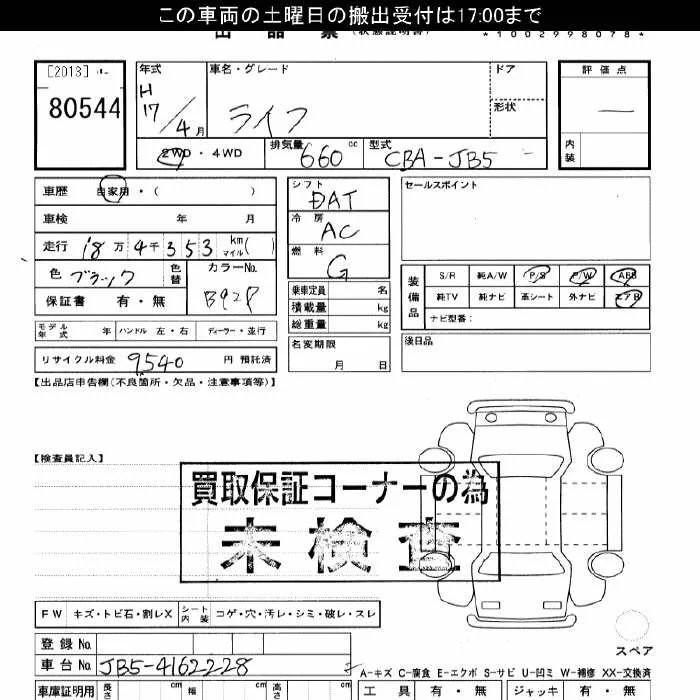 この車両の土曜日の搬出受付は17:00まで
出品票 (状態説明書) *1002998078*
[2013]
80544
年式 H 17/4月
車名・グレード ライフ
ドア
形状
評価点 —
内装
2WD・4WD
排気量 660 cc
型式 CBA-JB5
車歴 自家用・( )
車検 年 月
走行 18万4千353 km マイル( )
色 ブラック 色替
カラーNo. B92P
保証書 有・無
シフト DAT
冷房 AC
燃料 G
セールスポイント
乗車定員 名
積載量 kg
総重量 kg
装備品
S/R 純A/W P/S P/W ABS
純TV 純ナビ 革シート 外ナビ エアB
ナビ型番:
モデル年式 年 ハンドル 左・右 ディーラー・並行
名変期限 月 日
後日品
リサイクル料金 9540 円 預託済
【出品店申告欄(不良箇所・欠品・注意事項等)】
【検査員記入】
買取保証コーナーの為
未検査
FW キズ・トビ石・割レX シート内装 コゲ・穴・汚レ・シミ・破レ・スレ
登録No.
車台No. JB5-4162228
スペア
A-キズ C-腐食 E-エクボ S-サビ U-凹ミ W-補修 XX-交換済
車庫証明用 長さ cm 幅 cm 高さ cm
工具 有・無 ジャッキ 有・無